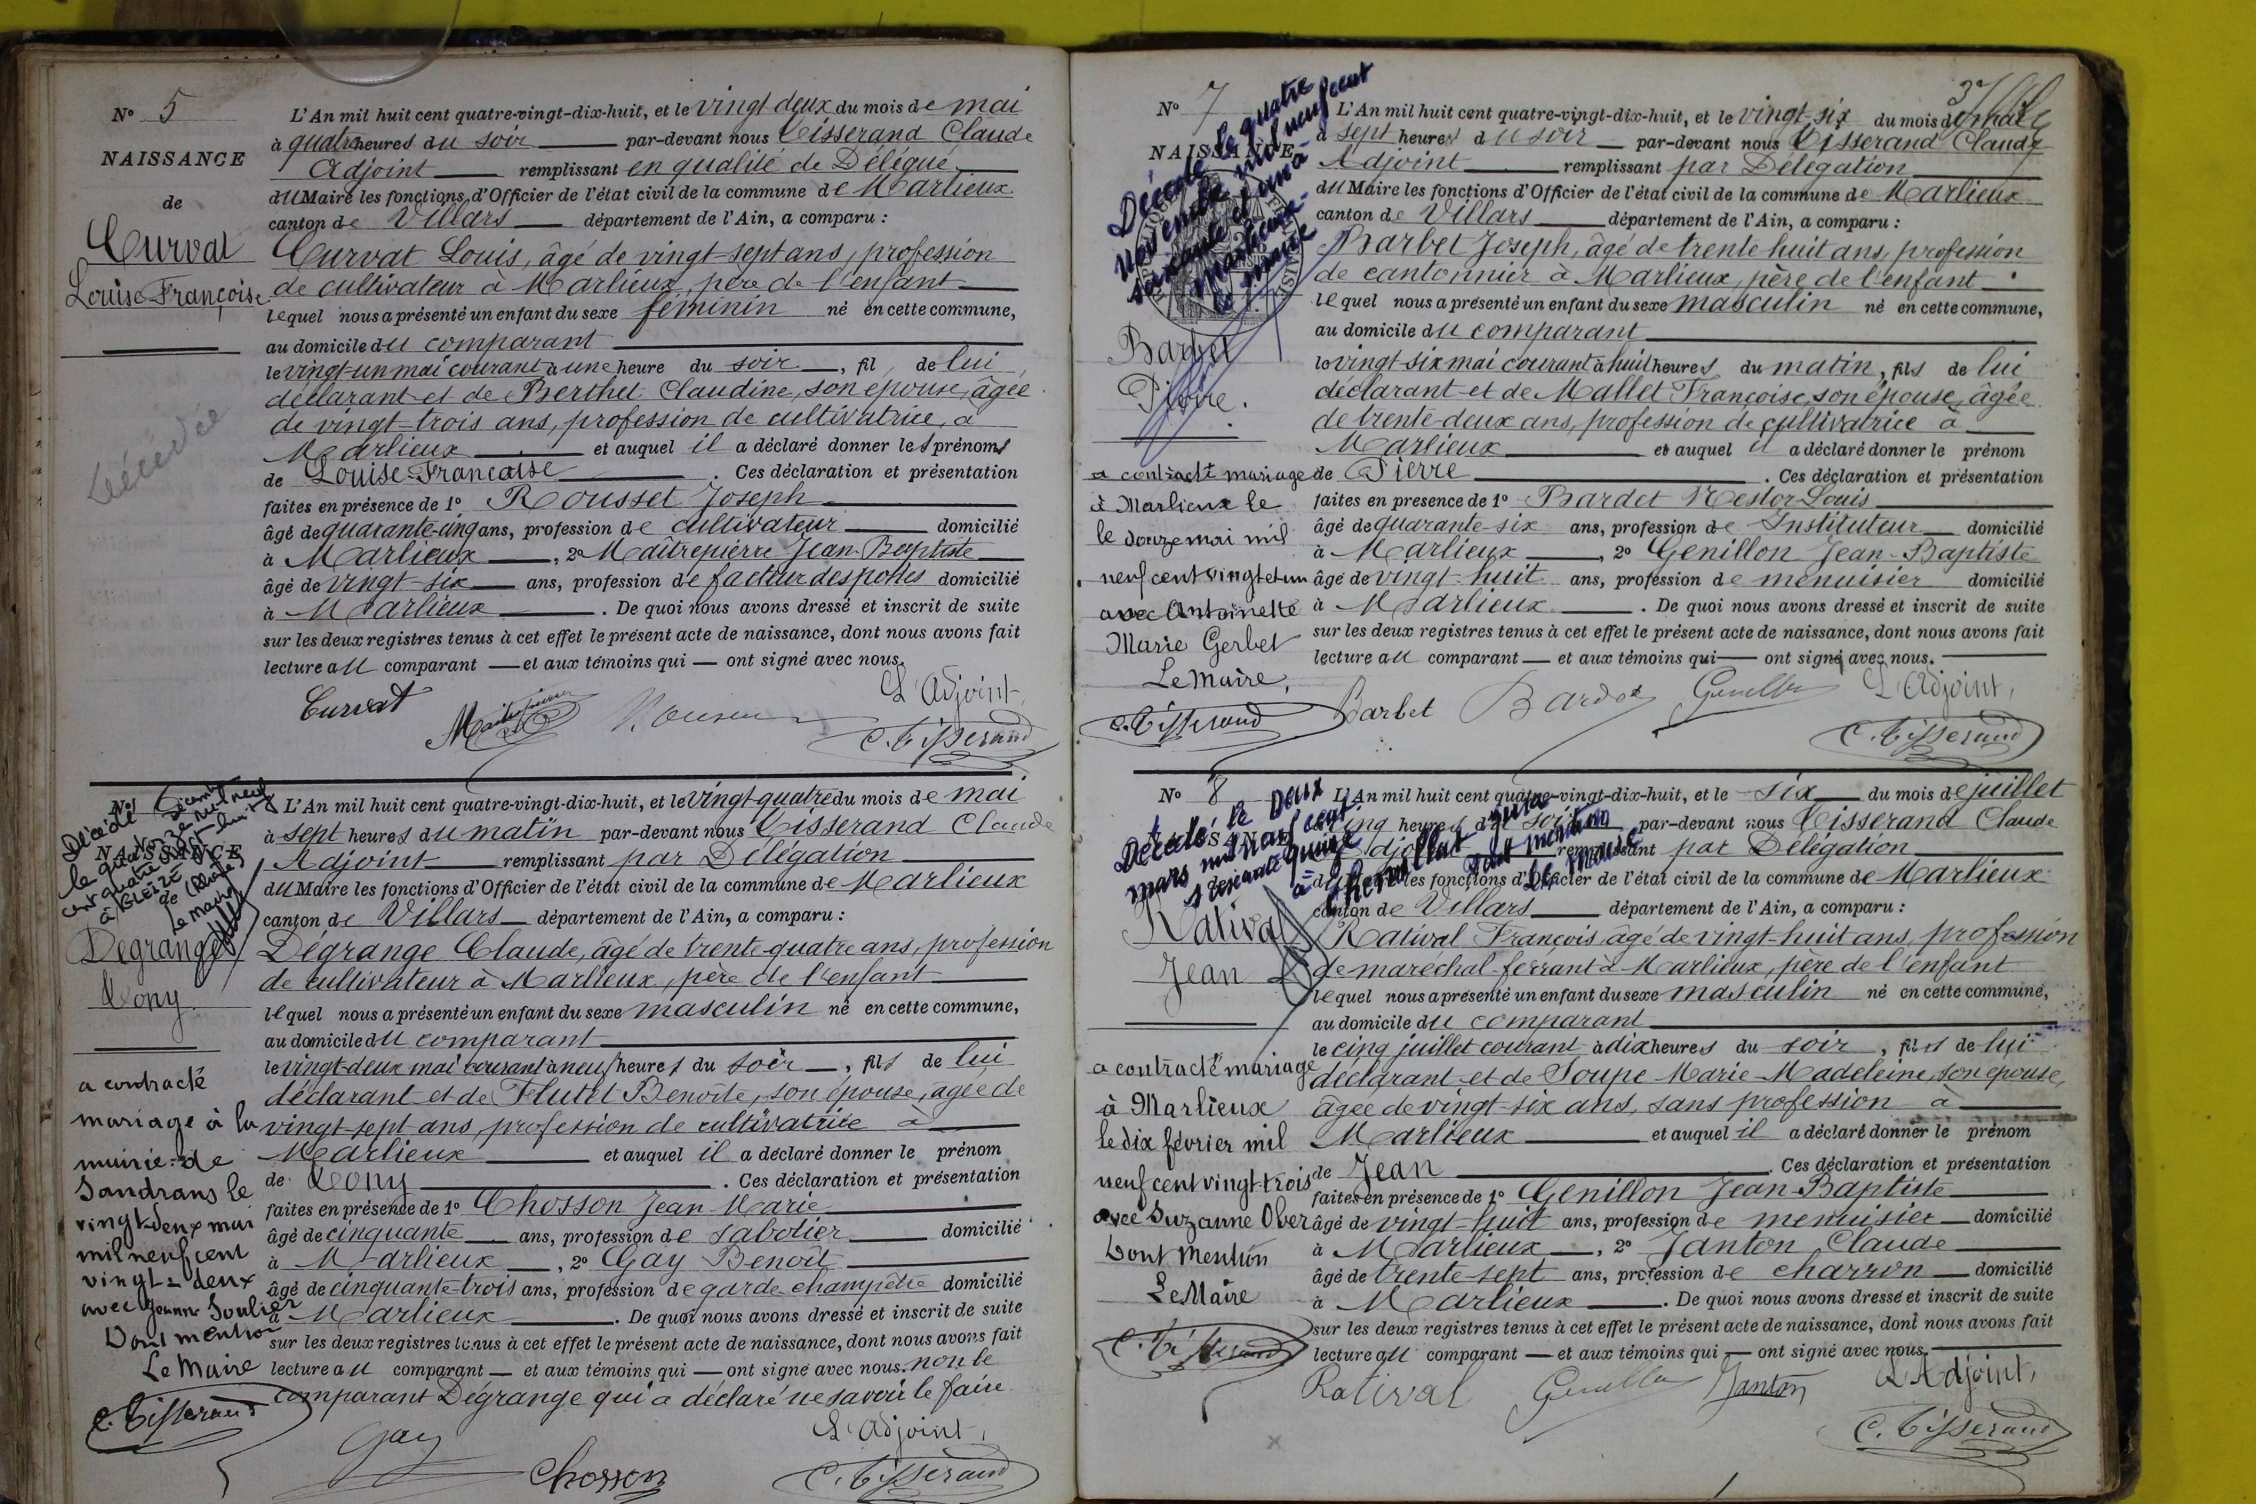 N° 5
NAISSANCE
de
Curvat
Louise-Françoise
Décédée
L'An mil huit cent quatre-vingt-dix-huit, et le vingt deux du mois de mai
à quatre heures du soir par-devant nous Tisserand Claude
Adjoint remplissant en qualité de Délégué
du Maire les fonctions d'Officier de l'état civil de la commune de Marlieux
canton de Villars département de l'Ain, a comparu :
Curvat Louis, âgé de vingt-sept ans, profession
de cultivateur à Marlieux, père de l'enfant
lequel nous a présenté un enfant du sexe féminin né en cette commune,
au domicile du comparant
le vingt-un mai courant à une heure du soir, fil de lui
déclarant et de Berthet Claudine, son épouse, âgée
de vingt-trois ans, profession de cultivatrice, à
Marlieux et auquel il a déclaré donner les prénoms
de Louise-Francoise. Ces déclaration et présentation
faites en présence de 1° Rousset Joseph
âgé de quarante-cinq ans, profession de cultivateur domicilié
à Marlieux, 2° Maîtrepierre Jean-Baptiste
âgé de vingt-six ans, profession de facteur des postes domicilié
à Marlieux. De quoi nous avons dressé et inscrit de suite
sur les deux registres tenus à cet effet le présent acte de naissance, dont nous avons fait
lecture au comparant et aux témoins qui ont signé avec nous.
L'Adjoint,
Curvat C. Tisserand
N°
NAISSANCE
Décédé
le quatorze Décembre
mil neuf
cent quatre-vingt-huit
à GLEIZÉ
(Rhône)
Le Maire
Degrange
Tony
a contracté
mariage à la
mairie de
Sandrans le
vingt-deux mai
mil neuf cent
vingt-deux
avec Jeanne Soulier
Dont mention
Le Maire
C. Tisserand
L'An mil huit cent quatre-vingt-dix-huit, et le vingt-quatre du mois de mai
à sept heures du matin par-devant nous Tisserand Claude
Adjoint remplissant par Délégation
du Maire les fonctions d'Officier de l'état civil de la commune de Marlieux
canton de Villars département de l'Ain, a comparu :
Degrange Claude, âgé de trente-quatre ans, profession
de cultivateur à Marlieux, père de l'enfant
lequel nous a présenté un enfant du sexe masculin né en cette commune,
au domicile du comparant
le vingt-deux mai courant à neuf heures du soir, fils de lui
déclarant et de Flutet Benoîte, son épouse, âgée de
vingt-sept ans, profession de cultivatrice à
Marlieux et auquel il a déclaré donner le prénom
de Tony. Ces déclaration et présentation
faites en présence de 1° Chosson Jean-Marie
âgé de cinquante ans, profession de sabotier domicilié
à Marlieux, 2° Gay Benoît
âgé de cinquante-trois ans, profession de garde champêtre domicilié
à Marlieux. De quoi nous avons dressé et inscrit de suite
sur les deux registres tenus à cet effet le présent acte de naissance, dont nous avons fait
lecture au comparant et aux témoins qui ont signé avec nous. non le
comparant Degrange qui a déclaré ne savoir le faire.
L'Adjoint,
Gay Chosson C. Tisserand
37
N° 7
NAISSANCE
Décédé le quatre
novembre mil neuf cent
soixante et un à
Marlieux
le maire
Barbet
Pierre.
a contracté mariage
à Marlieux le
le douze mai mil
neuf cent vingt et un
avec Antoinette
Marie Gerbet
Le Maire,
C. Tisserand
L'An mil huit cent quatre-vingt-dix-huit, et le vingt-six du mois de mai
à sept heures du soir par-devant nous Tisserand Claude
Adjoint remplissant par Délégation
du Maire les fonctions d'Officier de l'état civil de la commune de Marlieux
canton de Villars département de l'Ain, a comparu :
Barbet Joseph, âgé de trente huit ans, profession
de cantonnier à Marlieux, père de l'enfant
lequel nous a présenté un enfant du sexe masculin né en cette commune,
au domicile du comparant
le vingt-six mai courant à huit heures du matin, fils de lui
déclarant et de Mallet Françoise, son épouse, âgée
de trente-deux ans, profession de cultivatrice à
Marlieux et auquel il a déclaré donner le prénom
de Pierre. Ces déclaration et présentation
faites en présence de 1° Bardet Nestor-Louis
âgé de quarante-six ans, profession de Instituteur domicilié
à Marlieux, 2° Genillon Jean-Baptiste
âgé de vingt-huit ans, profession de menuisier domicilié
à Marlieux. De quoi nous avons dressé et inscrit de suite
sur les deux registres tenus à cet effet le présent acte de naissance, dont nous avons fait
lecture au comparant et aux témoins qui ont signé avec nous.
L'Adjoint,
Barbet Bardet Genillon
C. Tisserand
N° 8
Décédé le Deux
mars mil neuf cent
soixante quinze
à
Dont mention
Le Maire
Rativat
Jean
a contracté mariage
à Marlieux
le dix février mil
neuf cent vingt-trois
avec Suzanne Ober
Dont Mention
Le Maire
C. Tisserand
L'An mil huit cent quatre-vingt-dix-huit, et le six du mois de juillet
à cinq heures du soir par-devant nous Tisserand Claude
Adjoint remplissant par Délégation
du Maire les fonctions d'Officier de l'état civil de la commune de Marlieux
canton de Villars département de l'Ain, a comparu :
Rativat François, âgé de vingt-huit ans, profession
de maréchal-ferrant à Marlieux, père de l'enfant
lequel nous a présenté un enfant du sexe masculin né en cette commune,
au domicile du comparant
le cinq juillet courant à dix heures du soir, fils de lui
déclarant et de Soupe Marie-Madeleine, son épouse,
âgée de vingt-six ans, sans profession à
Marlieux et auquel il a déclaré donner le prénom
de Jean. Ces déclaration et présentation
faites en présence de 1° Genillon Jean-Baptiste
âgé de vingt-huit ans, profession de menuisier domicilié
à Marlieux, 2° Janton Claude
âgé de trente-sept ans, profession de charron domicilié
à Marlieux. De quoi nous avons dressé et inscrit de suite
sur les deux registres tenus à cet effet le présent acte de naissance, dont nous avons fait
lecture au comparant et aux témoins qui ont signé avec nous.
Rativat Genillon Janton L'Adjoint,
C. Tisserand